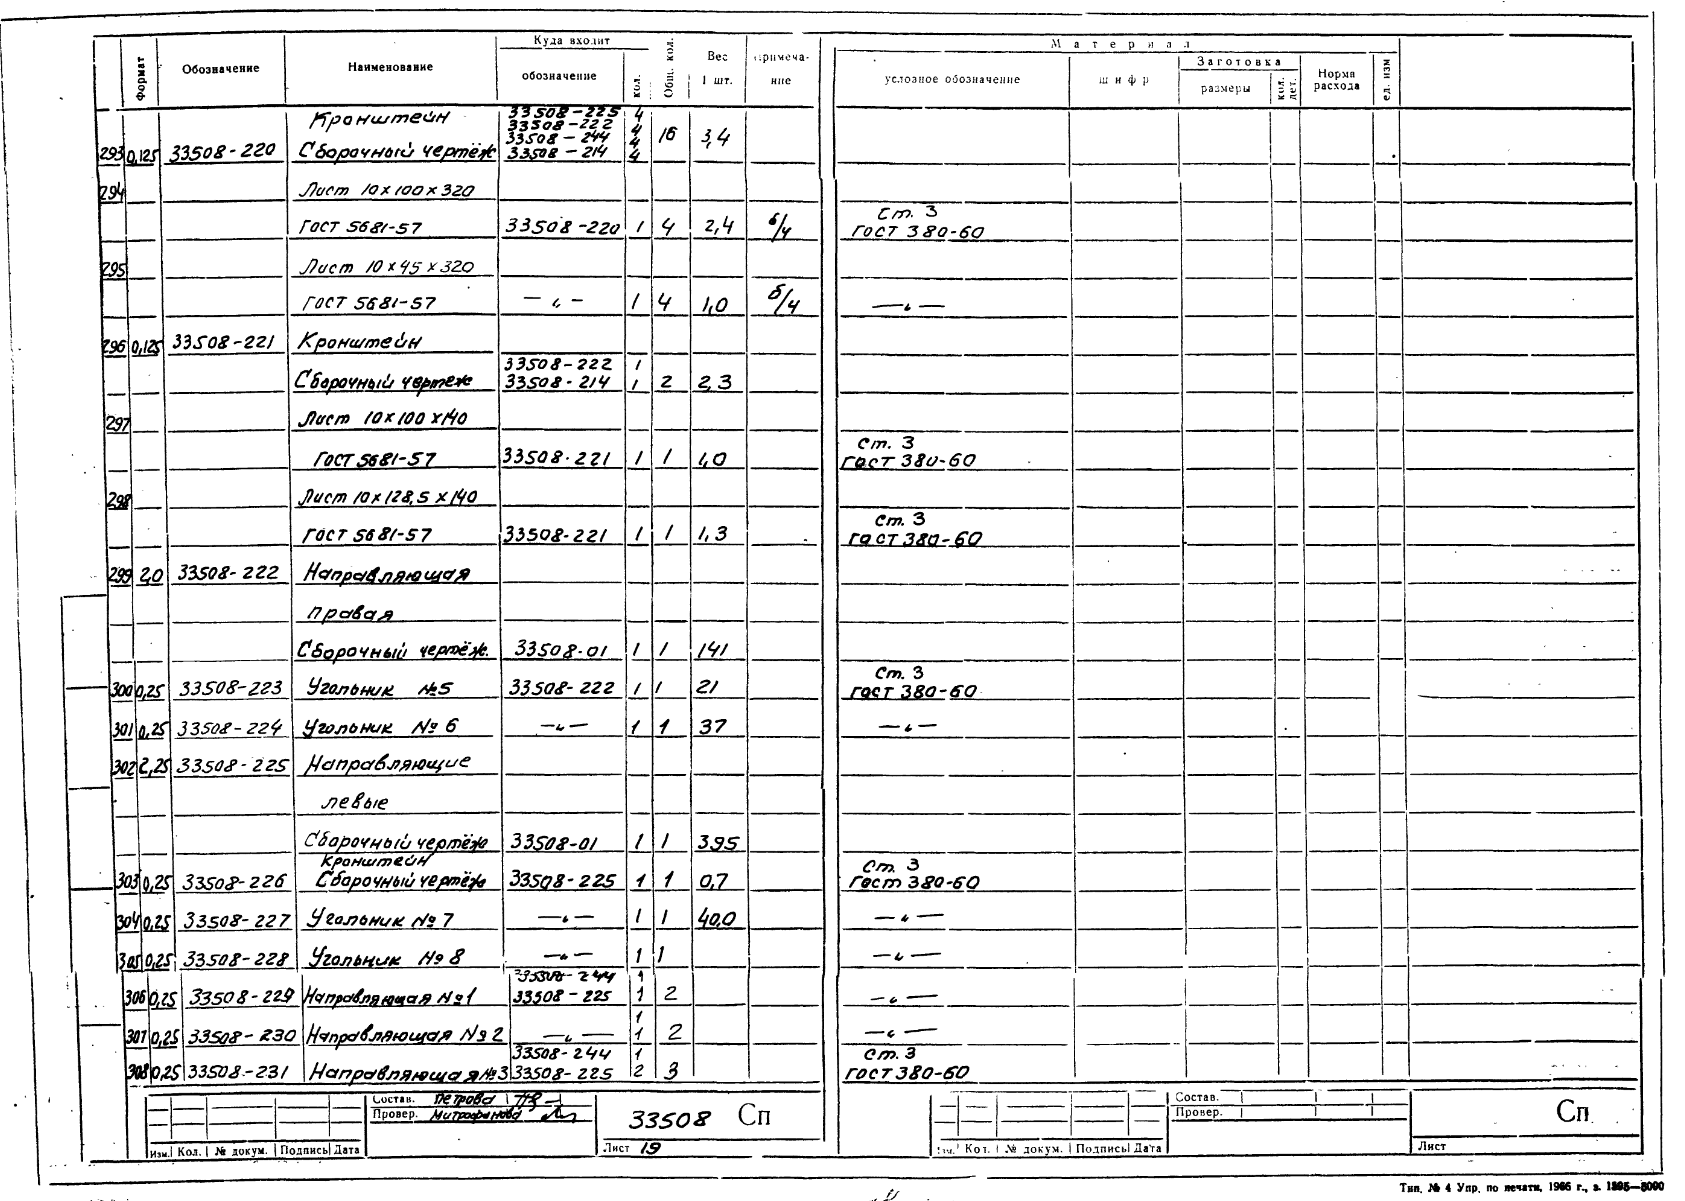 Формат Обозначение Наименование Куда входит обозначение кол. Общ. кол. Вес 1 шт. примеча-ние Материал условное обозначение шифр Заготовка размеры кол. дет. Норма расхода ед. изм
Кронштейн 33508-225 4
33508-222 4
33508-244 4 16 3,4
293 0,125 33508-220 Сборочный чертёж 33508-214 4
294 Лист 10х100х320
Ст. 3
ГОСТ 5681-57 33508-220 1 4 2,4 б/ч ГОСТ 380-60
295 Лист 10х45х320
ГОСТ 5681-57 —„— 1 4 1,0 б/ч —„—
296 0,125 33508-221 Кронштейн
33508-222 1
Сборочный чертеж 33508-214 1 2 2,3
297 Лист 10х100х140
Ст. 3
ГОСТ 5681-57 33508-221 1 1 1,0 ГОСТ 380-60
298 Лист 10х128,5х140
Ст. 3
ГОСТ 5681-57 33508-221 1 1 1,3 ГОСТ 380-60
299 2,0 33508-222 Направляющая
правая
Сборочный чертёж. 33508-01 1 1 141
Ст. 3
300 0,25 33508-223 Угольник №5 33508-222 1 1 21 ГОСТ 380-60
301 0,25 33508-224 Угольник №6 —„— 1 1 37 —„—
302 2,25 33508-225 Направляющие
левые
Сборочный чертёж 33508-01 1 1 395
Кронштейн Ст. 3
303 0,25 33508-226 Сборочный чертёж 33508-225 1 1 0,7 ГОСТ 380-60
304 0,25 33508-227 Угольник №7 —„— 1 1 40,0 —„—
305 0,25 33508-228 Угольник №8 —„— 1 1 —„—
33508-244 1
306 0,25 33508-229 Направляющая №1 33508-225 1 2 —„—
1
307 0,25 33508-230 Направляющая №2 —„— 1 2 —„—
33508-244 1 Ст. 3
308 0,25 33508-231 Направляющая №3 33508-225 2 3 ГОСТ 380-60
Состав. Петрова
Провер. Митрофанова
33508 Сп
Изм. Кол. № докум. Подпись Дата Лист 19
Состав.
Провер.
Сп
Изм. Кол. № докум. Подпись Дата Лист
Тип. № 4 Упр. по печати, 1966 г., з. 1395—5000